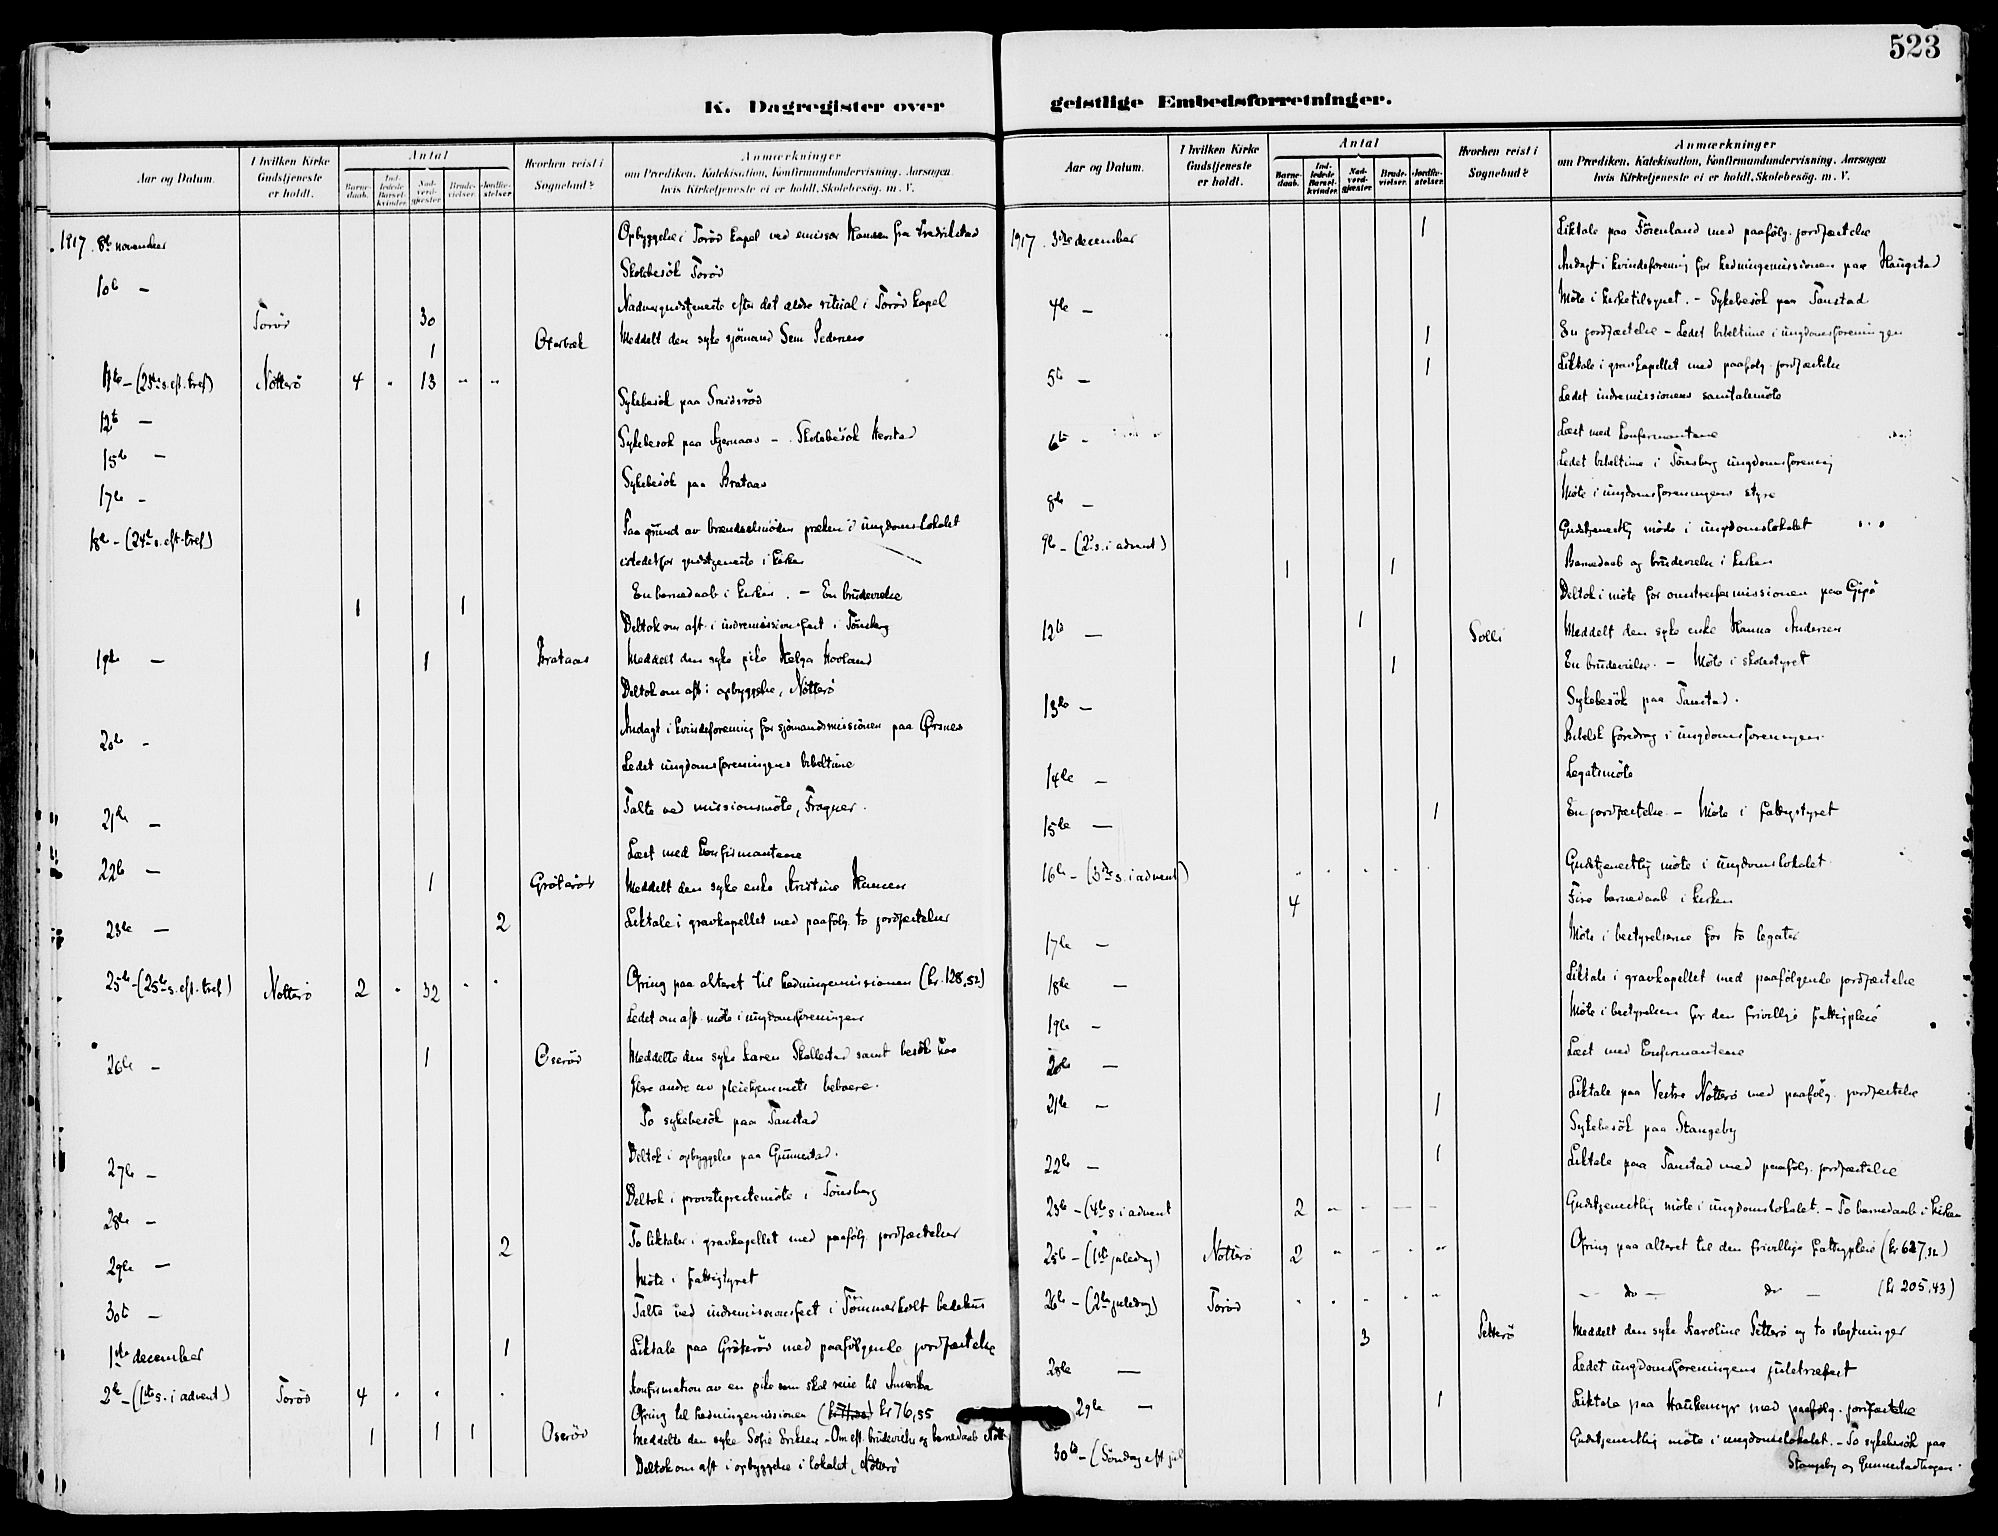 523
K. Dagregister over
geistlige Embedsforretninger.
Aar og Datum.
I hvilken Kirke Gudstjeneste er holdt.
Antal
Barnedaab.
Indledede Barselkvinder.
Nadverdgjæster
Brudevielser.
Jordfæstelser
Hvorhen reist i Sognebud?
Anmærkninger
om Prædiken, Katekisation, Konfirmandundervisning, Aarsagen
hvis Kirketjeneste ei er holdt, Skolebesøg. m. V.
1917. 8de november Opbyggelse i Torød kapel ved emissær Hansen fra Fredrikstad
10de - Skolebesök Torød
Torød 30 Nadvergudstjeneste efter det ældre ritual i Torød kapel
1 Meddelt den syke sjömand Sem Pedersen
11te - (23de s. eft. tref) Nötterö 4 " 13 " "
Sykebesök paa Smidsrød
12te - Sykebesök paa - Skolebesök
15de - Sykebesök paa Brataas
17de -
18de - (24de s. eft. tref) Paa grund av brændselsnöden præken i ungdomslokalet
istedetfor gudstjeneste i kirken
1 1 En barnedaab i kirken. - En brudevielse
Deltok om aft. i indremissionsfest i Tönsberg
19de - 1 Brataas Meddelt den syke pike Helga Hovland
Deltok om aft. i opbyggelse, Nötterö
20de - Andagt i kvindeforening for sjömandsmissionen paa Ørsnes
Ledet ungdomsforeningens bibeltime
21de - Talte ved missionsmöte, Fragner.
22de - Læst med konfirmantene
1 Grøterød Meddelt den syke enke Kristine Hansen
23de - 2 Liktale i gravkapellet med paafölg. to jordfæstelser
25de - (25de s. eft. tref) Nötterö 2 " 32 " " Ofring paa alteret til hedningemissionen (kr. 128,52)
Ledet om aft. möte i ungdomsforeningen
26de - 1 Oserød Meddelte den syke Karen Skallestad samt besök hos
flere andre av pleiehjemmets beboere.
To sykebesök paa Tanstad
27de - Deltok i opbyggelse paa Gunnestad.
28de - Deltok i provstiprestemöte i Tönsberg
29de - 2 To liktaler i gravkapellet med paafölg. jordfæstelser
Möte i fattigstyret
30te - Talte ved indremissionsfest i Tömmerholt bedehus
1ste december 1 Liktale paa Grøterød med paafölgende jordfæstelse
2de - (1ste s. i advent) Torød 4 " " " Konfirmation av en pike som skal reise til Amerika
Ofring til hedningemissionen kr 76,55
1 1 1 Oserød Meddelte den syke Sofie Eriksen - Om eft. brudevielse og barnedaab Nött.
Deltok om aft i opbyggelse i lokalet, Nötterö
Aar og Datum.
I hvilken Kirke Gudstjeneste er holdt.
Antal
Barnedaab.
Indledede Barselkvinder.
Nadverdgjæster
Brudevielser.
Jordfæstelser
Hvorhen reist i Sognebud?
Anmærkninger
om Prædiken, Katekisation, Konfirmandundervisning, Aarsagen
hvis Kirketjeneste ei er holdt, Skolebesög. m. V.
1917. 3die december 1 Liktale paa Föienland med paafölg. jordfæstelse
Andagt i kvindeforening for hedningemissionen paa Haugstad
4de - Möte i kirketilsynet. - Sykebesök paa Tanstad
1 En jordfæstelse - Ledet bibeltime i ungdomsforeningen
5te - 1 Liktale i gravkapellet med paafölg. jordfæstelse
Ledet indremissionens samtalemöte
6te - Læst med konfirmantene
Ledet bibeltime i Tönsberg ungdomsforening
8de - Möte i ungdomsforeningens styre
9de - (2. s. i advent) Gudstjenestlig möte i ungdomslokalet
1 1 Barnedaab og brudevielse i kirken
Deltok i möte for omstreifermissionen paa Gipö
12te - 1 Solli Meddelt den syke enke Hanna Andersen
1 En brudevielse. - Möte i skolestyret
13de - Sykebesök paa Tanstad.
Bibelsk foredrag i ungdomsforeningen.
14de - Legatsmöte
15de - 1 En jordfæstelse. - Möte i fattigstyret
16de - (3die s. i advent) Gudstjenestlig möte i ungdomslokalet
4 Fire barnedaab i kirken
17de - Möte i bestyrelserne for to legater
18de - Liktale i gravkapellet med paafölgende jordfæstelse
19de - Möte i bestyrelsen for den frivillige fattigpleie
20de - Læst med konfirmantene
21de - 1 Liktale paa Vestre Nötterö med paafölg. jordfæstelse
Sykebesök paa Stangeby
22de - 1 Liktale paa Tanstad med paafölg. jordfæstelse
23de - (4de s i advent 2 - - - - Gudstjenestlig möte i ungdomslokalet. - To barnedaab i kirken
25de - (1ste juledag) Nötterö 2 " " " " Ofring paa alteret til den frivillige fattigpleie
26de - (2den juledag) Torød " " " " " - do - do - (kr 205,43)
3 Petterö Meddelt den syke Karoline Petterö og to slegtninger
28de - Ledet ungdomsforeningens juletræfest
29de - 1 Liktale paa Haukemyr med paafölg. jordfæstelse
30te - (Söndag eft jul Gudstjenestlig möte i ungdomslokalet. - To sykebesök paa
Stangeby og Gunnestadhagen.